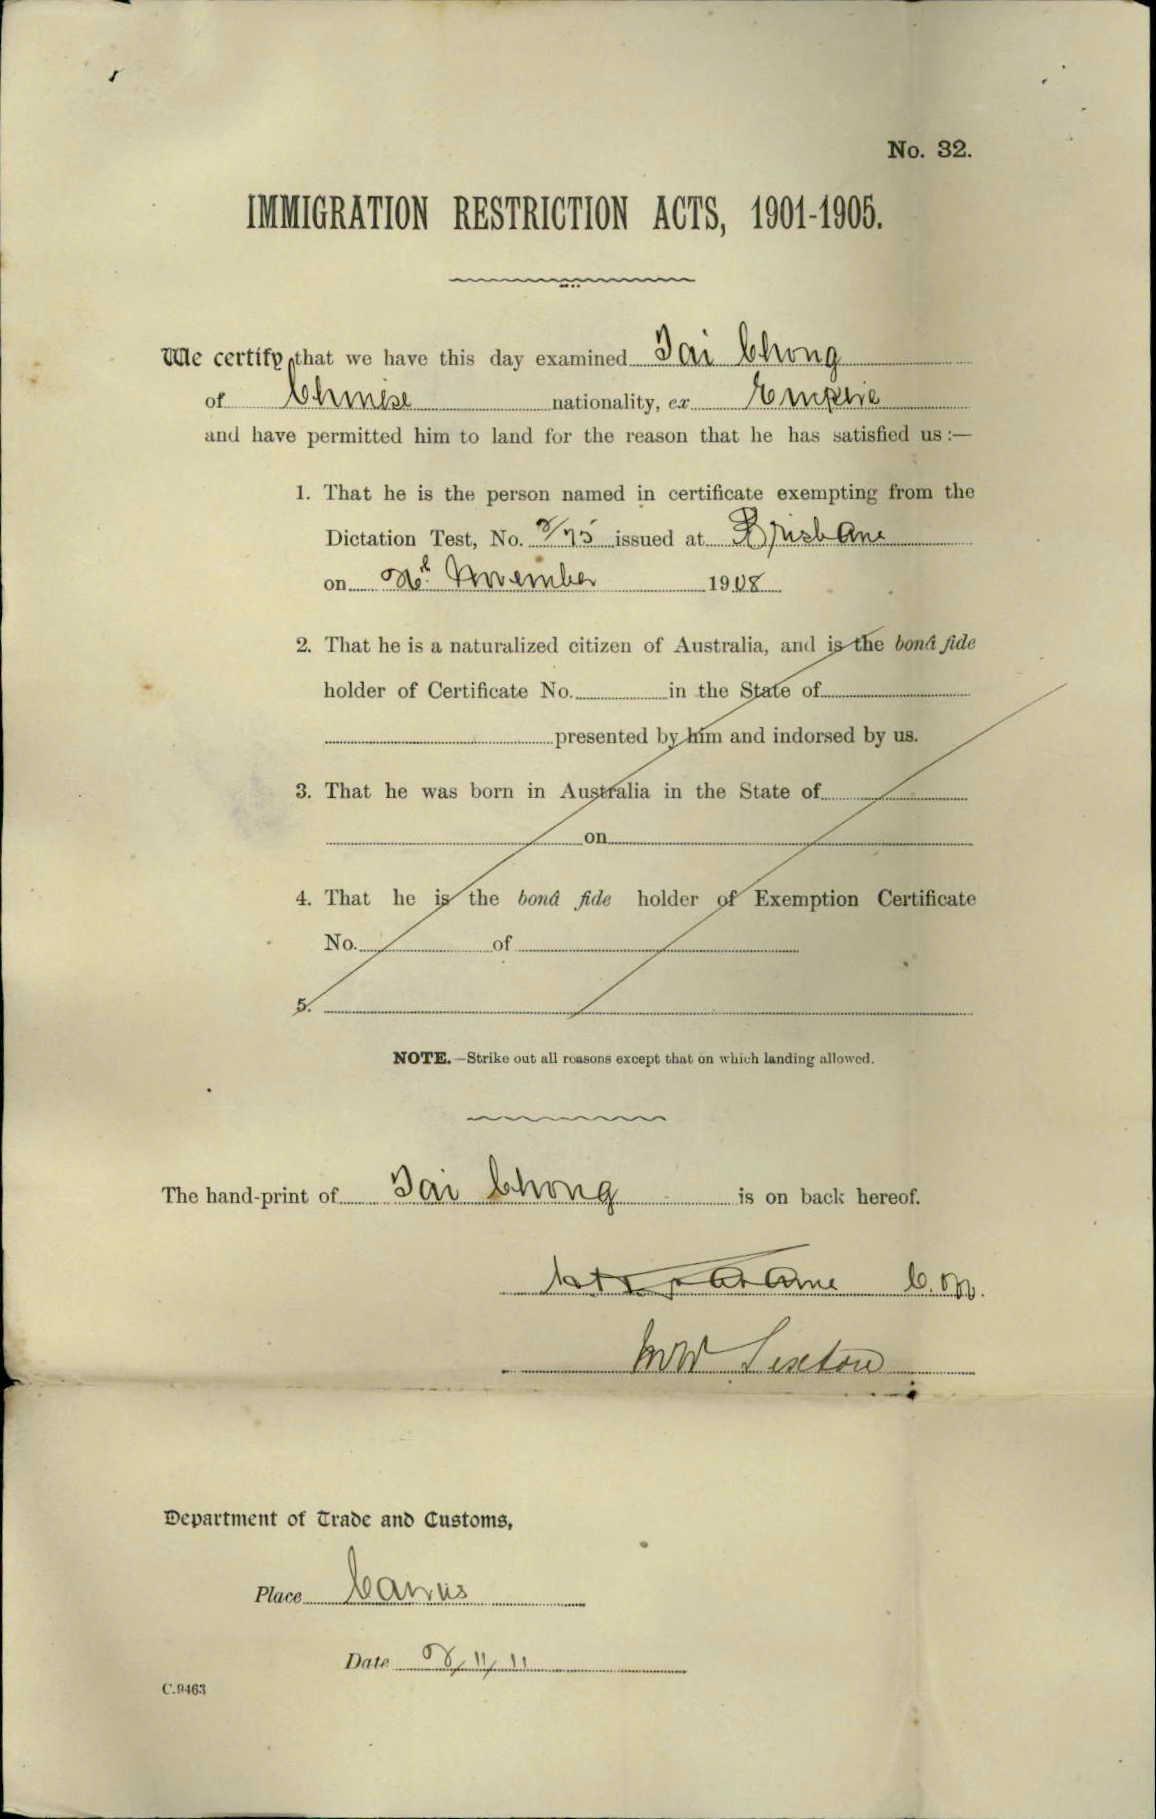 No. 32.
IMMIGRATION RESTRICTION ACTS, 1901-1905.
We certify that we have this day examined Tai Chong
of Chinese nationality, ex Empire
and have permitted him to land for the reason that he has satisfied us :—
1. That he is the person named in certificate exempting from the
Dictation Test, No. /75 issued at Brisbane
on November 1908
2. That he is a naturalized citizen of Australia, and is the bonâ fide
holder of Certificate No. in the State of
presented by him and indorsed by us.
3. That he was born in Australia in the State of
on
4. That he is the bonâ fide holder of Exemption Certificate
No. of
5.
NOTE.—Strike out all reasons except that on which landing allowed.
The hand-print of Tai Chong is on back hereof.
C.M.
Sexton
Department of Trade and Customs,
Place Cairns
Date 8/11/11
C.9463